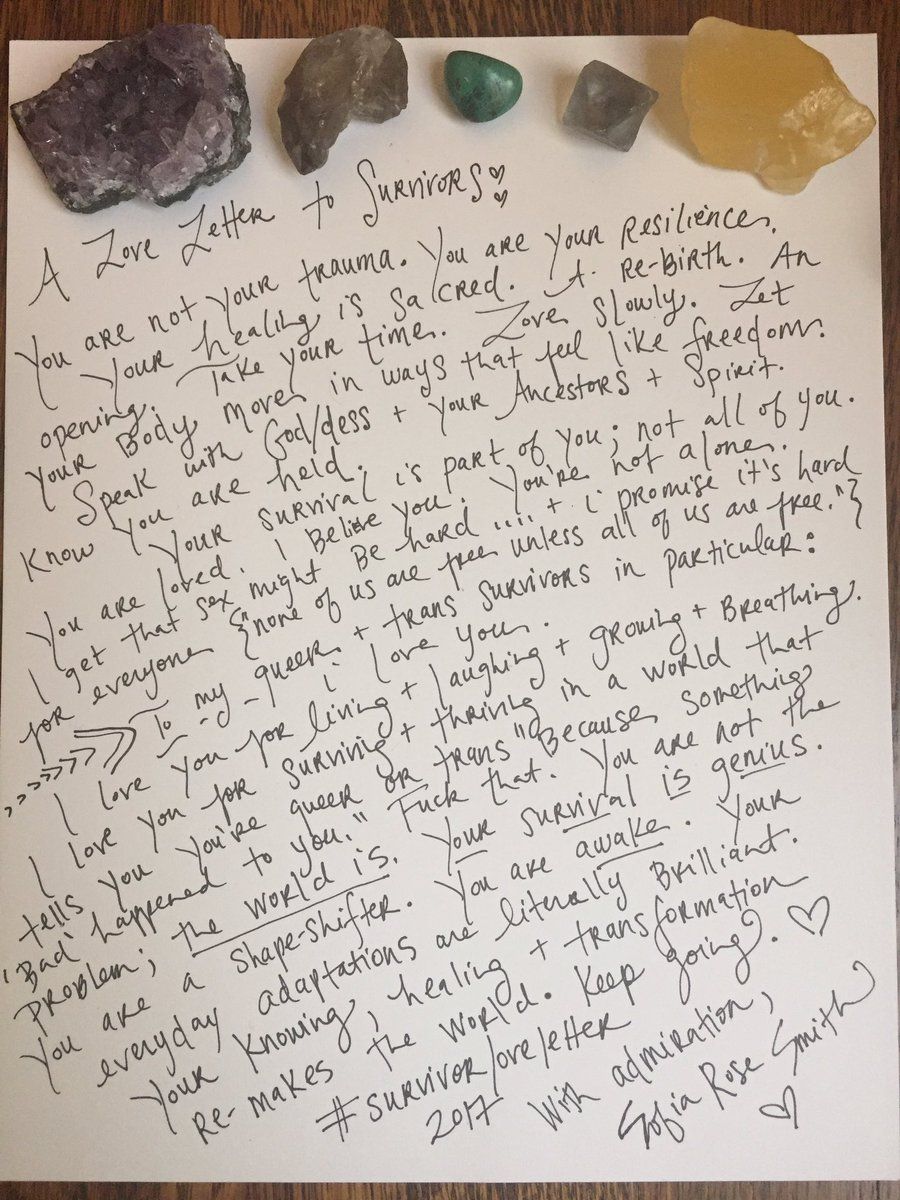 A Love Letter to Survivors ♡♡
You are not your trauma. You are your resilience.
Your healing is sacred. A re-birth. An
opening. Take your time. Love slowly. Let
your body move in ways that feel like freedom.
Speak with God/dess + your Ancestors + Spirit.
Know you are held.
Your survival is part of you; not all of you.
You are loved. I believe you. You're not alone.
I get that sex might be hard .... + i promise it's hard
for everyone {"none of us are free unless all of us are free."}
>>>>>> To my queer + trans survivors in particular:
i love you.
I love you for living + laughing + growing + breathing.
I love you for surviving + thriving in a world that
tells you you're queer or trans "because something
'bad' happened to you." Fuck that. You are not the
problem; the world is. Your survival is genius.
You are a shape-shifter. You are awake. Your
everyday adaptations are literally brilliant.
Your knowing, healing + transformation
re-makes the world. Keep going. ♡
#survivorloveletter
2017 With admiration,
Sofia Rose Smith
♡